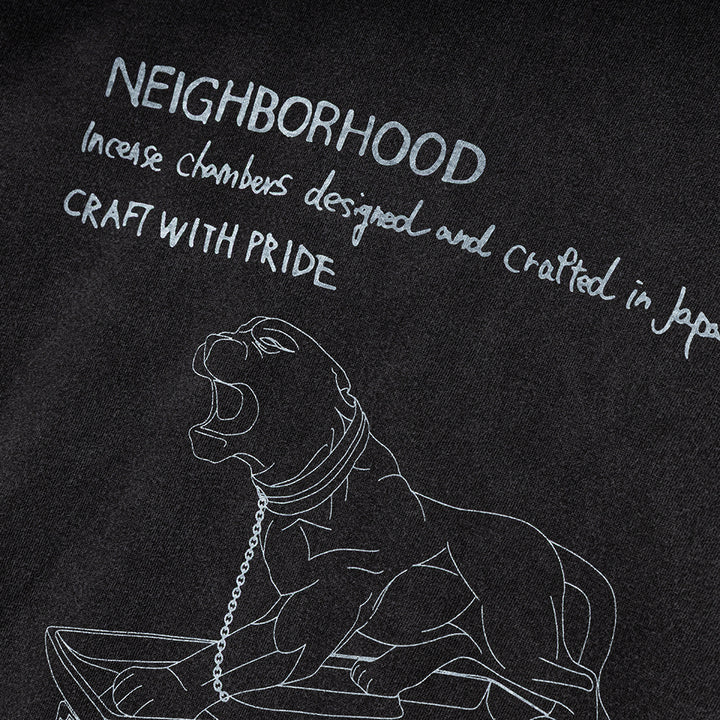 NEIGHBORHOOD
Incense chambers designed and crafted in Japa
CRAFT WITH PRIDE